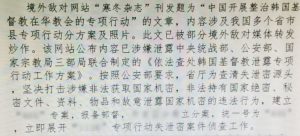 境外敌对网站“寒冬杂志”刊发题为“中国开展整治韩国基
督教在华教会的专项行动”的文章，内容涉及我国多个省市
县专项行动分方案及照片。此文已被部分境外敌对媒体转发
炒作。该网站公布内容已涉嫌泄露中央统战部、公安部、国
家宗教局三部局联合制定的《依法查处韩国基督教渗透专项
行动工作方案》。按照公安部要求，省厅为查清失泄密源头
，坚决打击涉嫌非法获取国家机密、非法持有国家绝密、秘密
文件、资料、物品和故意泄露国家机密的违法行为。建立
专案，报备部督，立分案，统一号为
，立即展开 专项行动失泄密案件侦查工作。